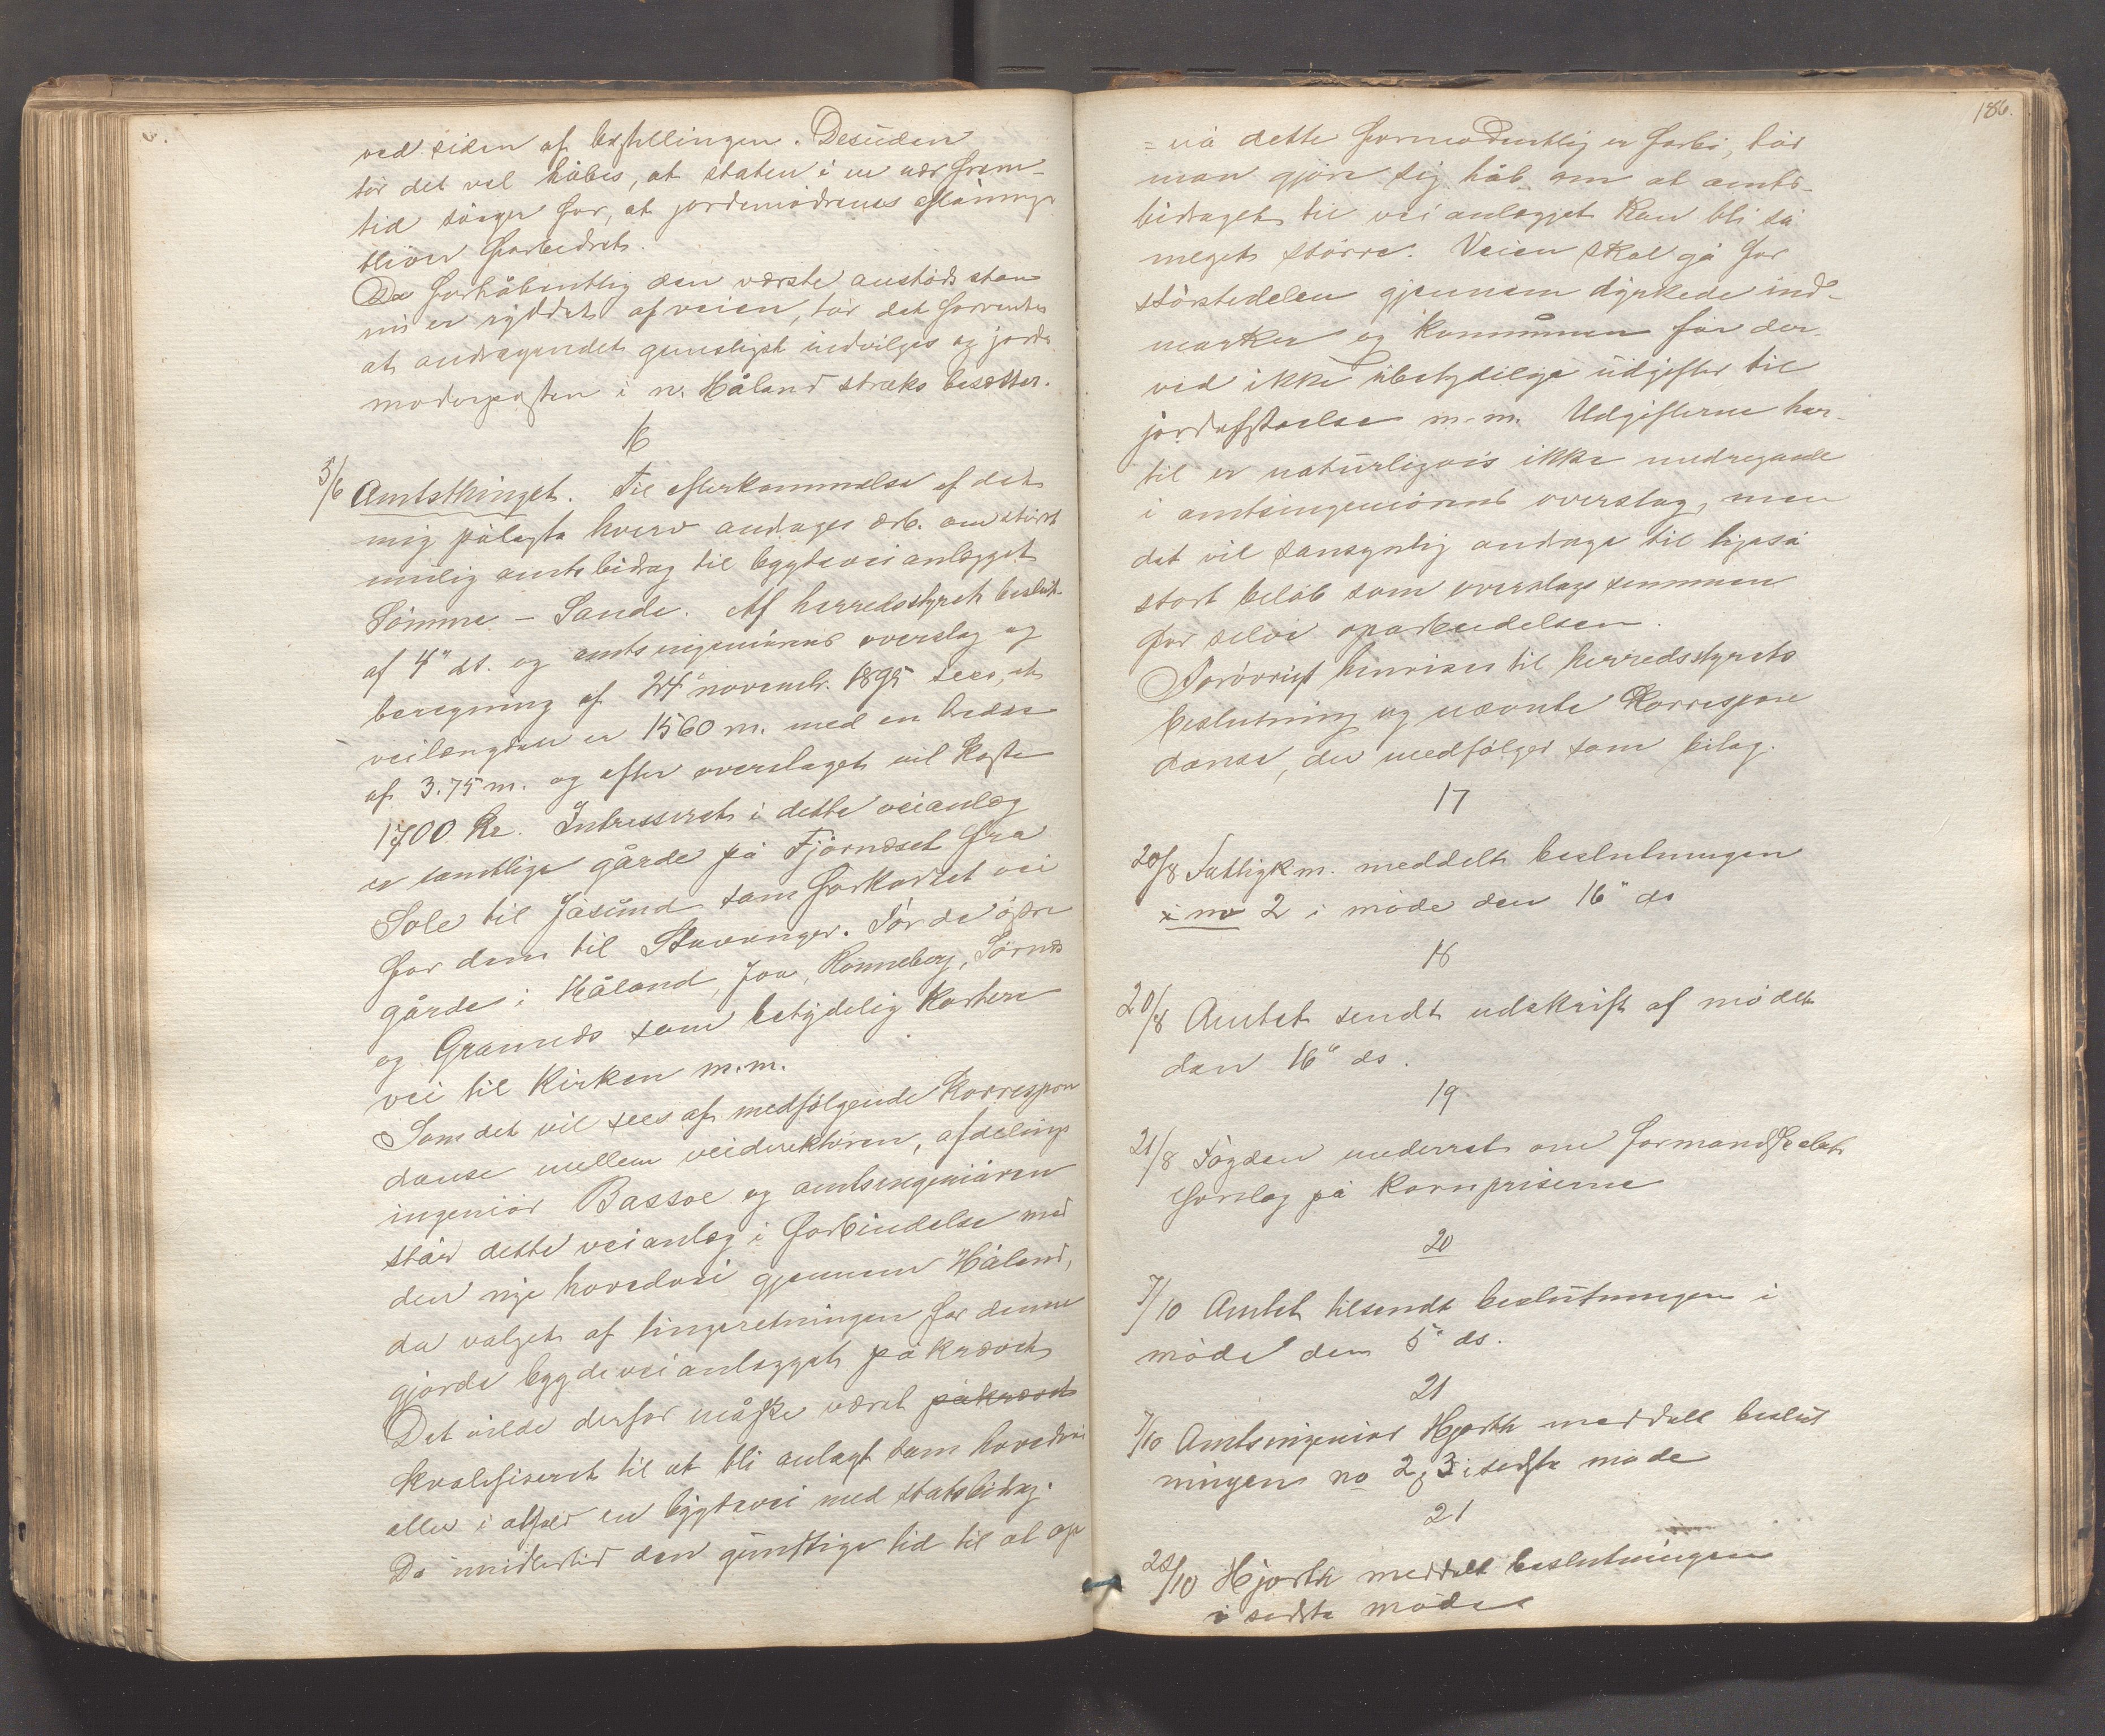 ved siden af bestillingen. Desuden
tör det vel håbes, at staten i en nær frem-
tid sörger for, at jordemödrenes aflönning
bliver forbedret.
Da forhåbentlig den værste anstöds sten
nu er ryddet af veien, tör det forventes
at andragendet gunstigst indvilges og jorde
moderposten i n. Håland straks besættes.
16
5/6 Amtsthinget. Til efterkommelse af det
mig pålagte hverv andrages ærb. om störst
mulig amtsbidrag til bygdeveianlægget
Sömme - Sande. Af herredsstyrets beslut-
af 4" ds. og amtsingeniörens overslag og
beregning af 24" novemb. 1895 sees, at
veilængden er 1560 m. med en bredde
af 3.75 m. og efter overslaget vil koste
1700 Kr. Intresseret i dette veianlæg
er samtlige gårde på Tjörnæset fra
Sole til Jåsund som forkortet vei
for dem til Stavanger. For de östre
gårde i Håland, Joa, Rönneberg, Sörnes
og Grannæs som betydelig kortere
vei til Kirken m.m.
Som det vil sees af medfölgende Korrespon
danse mellem veidirektören, afdelings
ingeniör Bassöe og amtsingeniören
står dette veianlæg i forbindelse med
den nye hovedvei gjennem Håland,
da valget af linjeretningen for denne
gjorde bygdeveianlægget påkrævet
Det vilde derfor måske været påkrævet
kvalifiseret til at bli anlagt som hovedvei
eller i alfald en bygdevei med statsbidrag.
Da imidlertid den gunstige tid til at op
186.
= nå dette formodentlig er forbi, tör
man gjöre sig håb om at amts-
bidraget til veianlægget kan bli så
meget större. Veien skal gå for
störstedelen gjennem dyrkede ind-
marker og kommunen får der-
ved ikke ubetydelige udgifter til
jordafståelse m.m. Udgifterne her-
til er naturligvis ikke medregnede
i amtsingeniörens overslag, men
det vil sansynlig andrage til ligeså
stort belöb som overslagssummen
for selve oparbeidelsen.
Forövrigt henvises til herredsstyrets
beslutning og nævnte Korrespon
danse, der medfölger som bilag.
17
20/8 Fattigkm. meddelt beslutningen
i no 2 i möde den 16" ds
18
20/8 Amtet sendt udskrift af mödet
den 16" ds.
19
21/8 Fogden underret om formandskabets
forslag på Kornpriserne
20
7/10 Amtet tilsendt beslutningen i
möde den 5" ds.
21
7/10 Amtsingeniör Hjorth meddelt beslut
ningen no 2 & 3 i sidste möde
21
28/10 Hjorth meddelt beslutningen
i sidste möde